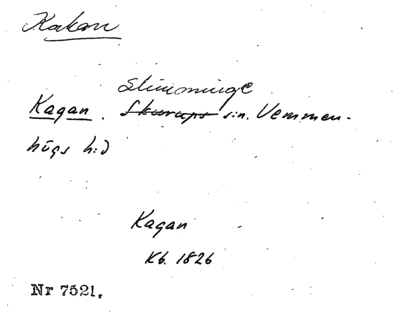 Kakan
Slimminge
Kagan. Skurups s:n. Vemmen-
högs h:d
Kagan
Kb. 1826
Nr 7521.